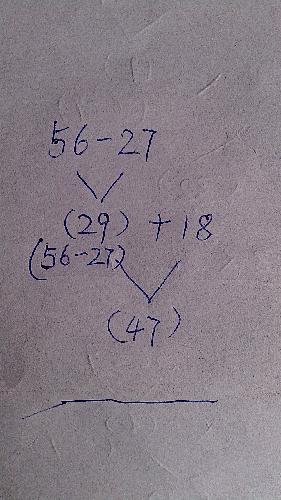 56-27
(29) +18
(56-27)
(47)